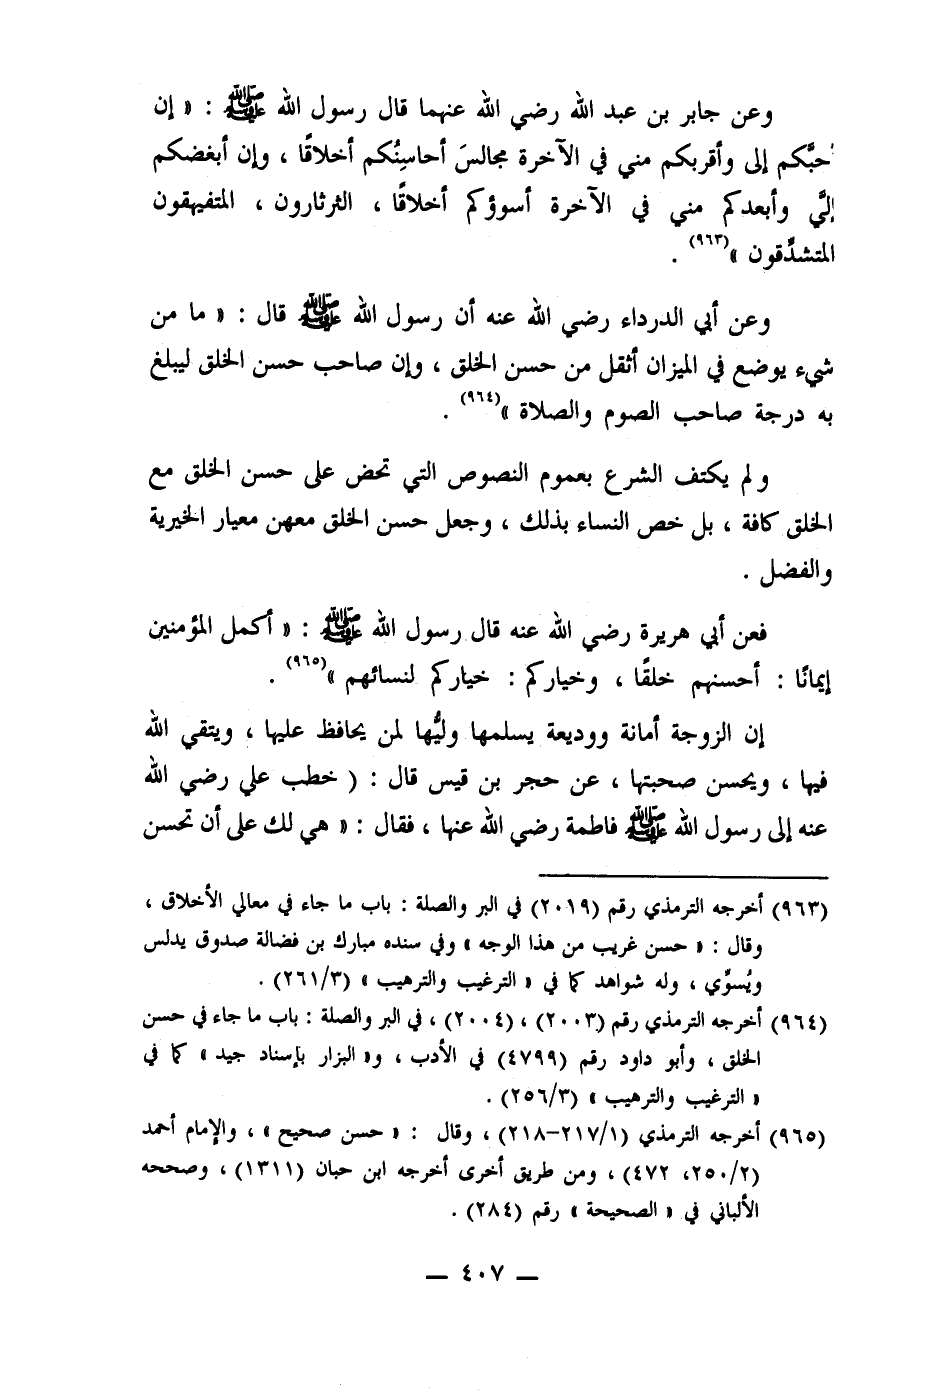 وعن جابر بن عبد الله رضي الله عنهما قال رسول الله ﷺ : « إن
أحبَّكم إلى وأقربكم مني في الآخرة مجالسَ أحاسِنُكم أخلاقًا ، وإن أبغضكم
إليَّ وأبعدكم مني في الآخرة أسوؤكم أخلاقًا ، الثرثارون ، المتفيهقون
المتشدِّقون »(٩٦٣) .
وعن أبي الدرداء رضي الله عنه أن رسول الله ﷺ قال : « ما من
شيء يوضع في الميزان أثقل من حسن الخلق ، وإن صاحب حسن الخلق ليبلغ
به درجة صاحب الصوم والصلاة »(٩٦٤) .
ولم يكتف الشرع بعموم النصوص التي تحض على حسن الخلق مع
الخلق كافة ، بل خص النساء بذلك ، وجعل حسن الخلق معهن معيار الخيرية
والفضل .
فعن أبي هريرة رضي الله عنه قال رسول الله ﷺ : « أكمل المؤمنين
إيمانًا : أحسنهم خلقًا ، وخياركم : خياركم لنسائهم »(٩٦٥) .
إن الزوجة أمانة ووديعة يسلمها وليُّها لمن يحافظ عليها ، ويتقي الله
فيها ، ويحسن صحبتها ، عن حجر بن قيس قال : ( خطب علي رضي الله
عنه إلى رسول الله ﷺ فاطمة رضي الله عنها ، فقال : « هي لك على أن تحسن
(٩٦٣) أخرجه الترمذي رقم (٢٠١٩) في البر والصلة : باب ما جاء في معالي الأخلاق ،
وقال : « حسن غريب من هذا الوجه » وفي سنده مبارك بن فضالة صدوق يدلس
ويُسوِّي ، وله شواهد كما في « الترغيب والترهيب » (٢٦١/٣) .
(٩٦٤) أخرجه الترمذي رقم (٢٠٠٣) ، (٢٠٠٤) ، في البر والصلة : باب ما جاء في حسن
الخلق ، وأبو داود رقم (٤٧٩٩) في الأدب ، و« البزار بإسناد جيد » كما في
« الترغيب والترهيب » (٢٥٦/٣) .
(٩٦٥) أخرجه الترمذي (٢١٧/١-٢١٨) ، وقال : « حسن صحيح » ، والإمام أحمد
(٢٥٠/٢، ٤٧٢) ، ومن طريق أخرى أخرجه ابن حبان (١٣١١) ، وصححه
الألباني في « الصحيحة » رقم (٢٨٤) .
— ٤٠٧ —